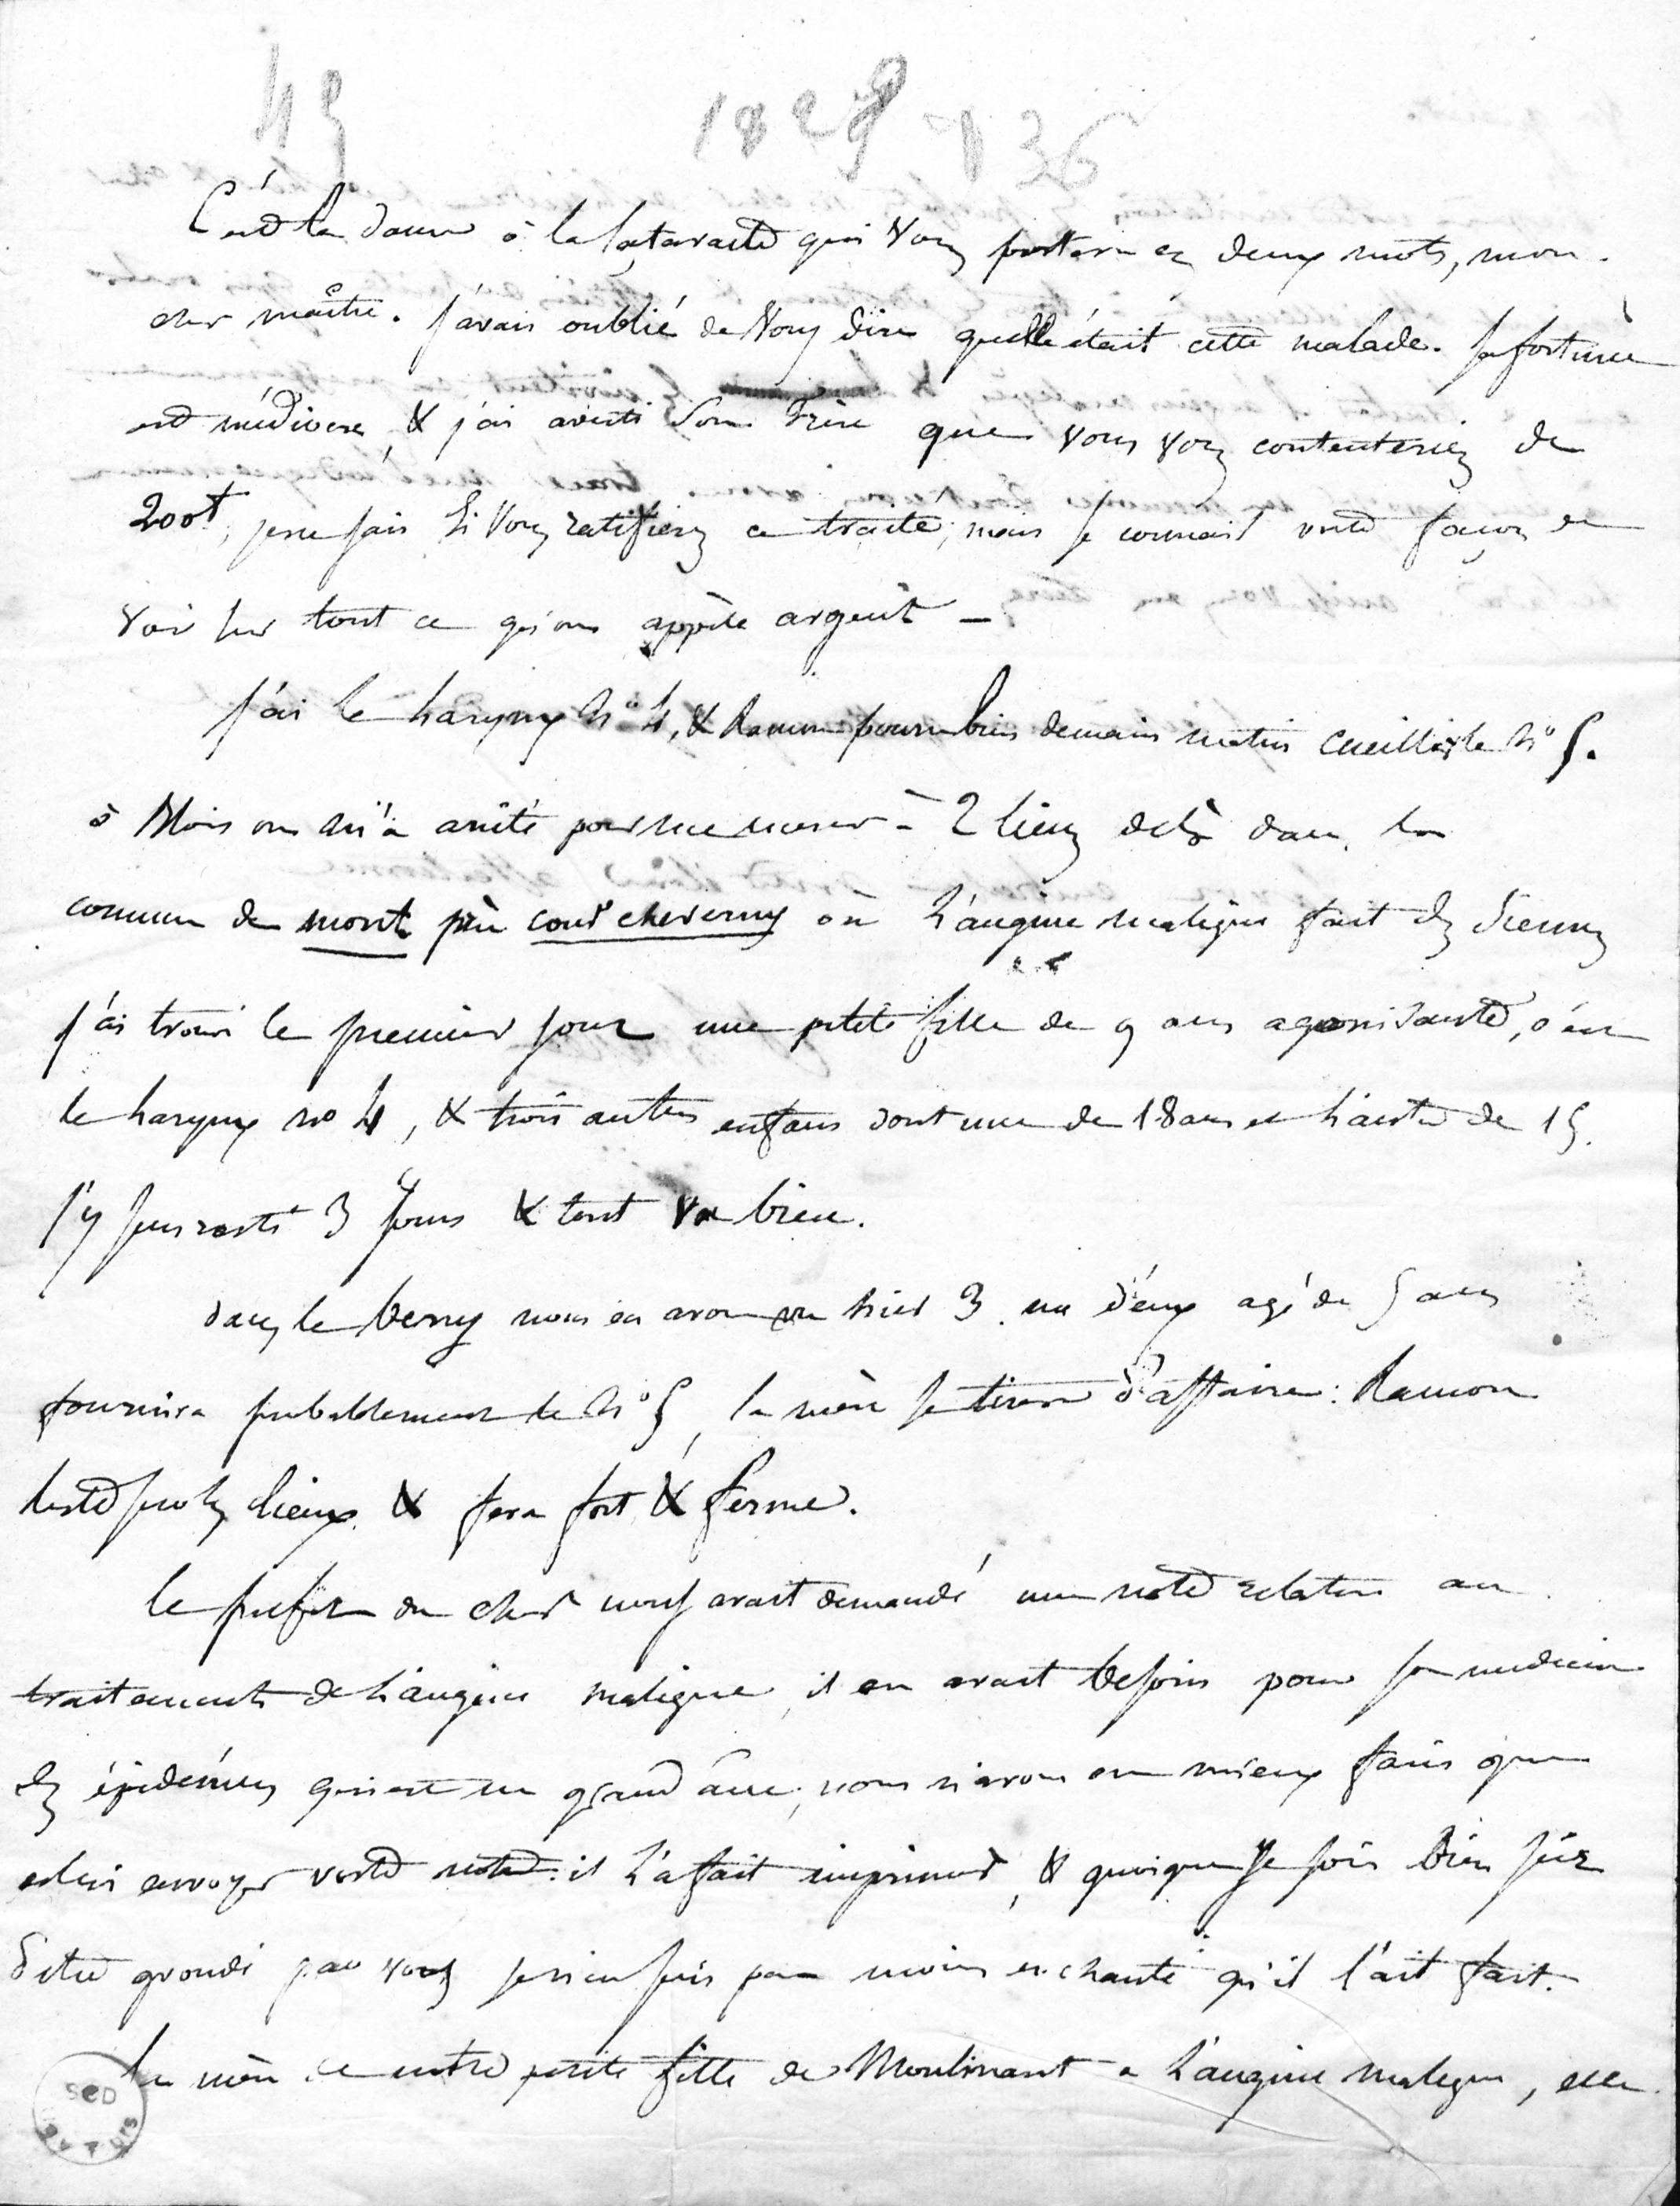 49
1829 - 836
C'est la dame à la cataracte qui vous portera ces deux mots, mon
cher maître. j'avais oublié de vous dire quelle était cette malade. Sa fortune
est médiocre, & j'ai averti son frère que vous vous contenteriez de
200f, je ne sais si vous ratifierez ce traité; mais je connais votre façon de
voir sur tout ce qu'on appèle argent —
j'ai le larynx n° 4, & Ramon pourra bien demain matin cueillir le n° 5.
à Blois on m'a arrêté pour me mener à 2 lieues delà dans la
commune de mont près cour cheverny où l'angine maligne fait des siennes
j'ai trouvé le premier jour une petite fille de 9 ans agonisante, c'est
le larynx n° 4, & trois autres enfans dont une de 18 ans et l'autre de 15.
j'y suis resté 3 jours & tout va bien.
dans le berry nous en avons vu hier 3. un d'eux agé de 5 ans
fournira probablement le n° 5, la mère se tirera d'affaire: Ramon
reste sur les lieux & fera fort & ferme.
le préfet du cher nous avait demandé une note relative au
traitement de l'angine maligne, il en avait besoin pour son médecin
des épidémies qui est un grand âne; nous n'avons eu mieux faire que
de lui envoyer votre note: il l'a fait imprimer, & quoique je sois bien sûr
d'être grondé par vous je n'en suis pas moins enchanté qu'il l'ait fait.
la mère de notre petite fille de Moulinant a l'angine maligne, elle